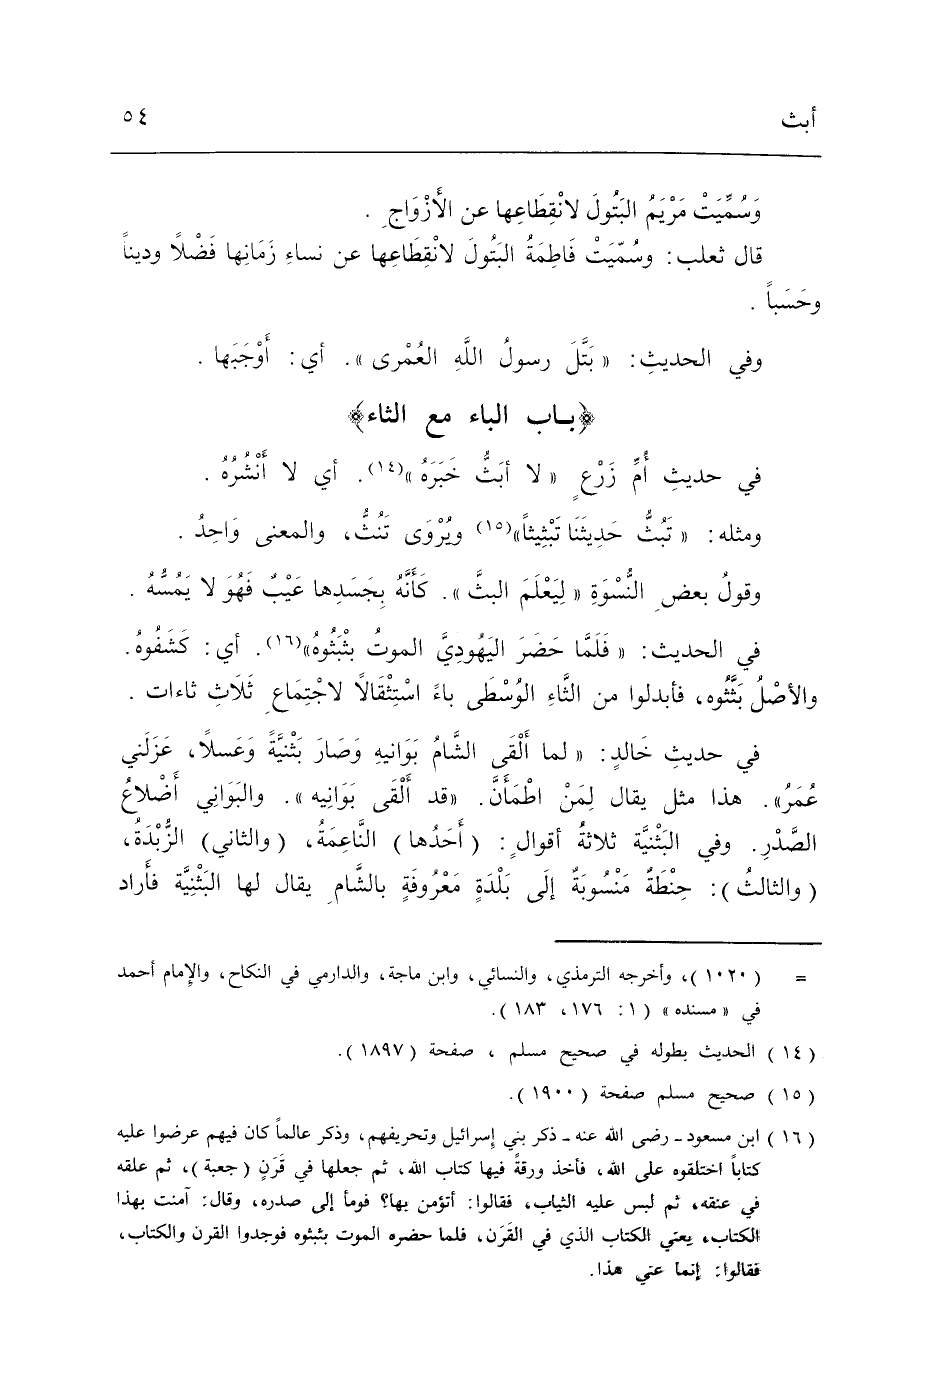 أبث
٥٤
وَسُمِّيَتْ مَرْيَمُ البَتُولَ لانْقِطَاعِها عن الأَزْوَاجِ .
قال ثعلب: وسُمّيَتْ فَاطِمَةُ البَتُولَ لانْقِطَاعِها عن نساءِ زَمَانِها فَضْلًا وديناً
وحَسَباً .
وفي الحديثِ: « بَتَّلَ رسولُ اللَّهِ العُمْرى ». أي: أَوْجَبَها .
﴿باب الباء مع الثاء﴾
في حديثِ أُمِّ زَرْعٍ « لا أبَثُّ خَبَرَهُ »(١٤). أي لا أَنْشُرُهُ .
ومثله: « تَبُثُّ حَدِيثَنَا تَبْثِيثاً»(١٥) ويُرْوَى تَنُثُّ، والمعنى وَاحِدُ .
وقولُ بعضِ النُّسْوَةِ « لِيَعْلَمَ البثَّ ». كَأَنَّهُ بِجَسَدِها عَيْبٌ فَهُوَ لا يَمُسُّهُ .
في الحديث: « فَلَمَّا حَضَرَ اليَهُودِيَّ الموتُ بثْبَثُوهُ»(١٦). أي: كَشَفُوهُ.
والأصْلُ بَثَّثُوه، فأبدلوا من الثَّاءِ الوُسْطَى باءً اسْتِثْقَالًا لاجْتِمَاعِ ثَلَاثِ ثاءات .
في حديثِ خَالدٍ: « لما أَلْقَى الشَّامُ بَوَانيهِ وَصَارَ بَثْنِيَّةً وَعَسلًا، عَزَلَني
عُمَرُ». هذا مثل يقال لِمَنْ اطْمَأَنَّ. «قد أَلْقَى بَوَانِيه ». والبَوَانِي أَضْلاعُ
الصَّدْرِ. وفي البَثْنِيَّة ثلاثةُ أقوالٍ: (أَحَدُها) النَّاعِمَةُ، (والثاني) الزُّبْدَةُ،
(والثالثُ): حِنْطَةٌ مَنْسُوبَةٌ إلَى بَلْدَةٍ مَعْرُوفَةٍ بالشَّامِ يقال لها البَثْنِيَّة فأراد
= (١٠٢٠)، وأخرجه الترمذي، والنسائي، وابن ماجة، والدارمي في النكاح، والإمام أحمد
في « مسنده » (١: ١٧٦، ١٨٣).
(١٤) الحديث بطوله في صحيح مسلم ، صفحة (١٨٩٧).
(١٥) صحيح مسلم صفحة (١٩٠٠).
(١٦) ابن مسعود ـ رضى الله عنه ـ ذكر بني إسرائيل وتحريفهم، وذكر عالماً كان فيهم عرضوا عليه
كتاباً اختلقوه على الله، فأخذ ورقةً فيها كتاب الله، ثم جعلها في قَرَنٍ (جعبة)، ثم علقه
في عنقه، ثم لبس عليه الثياب، فقالوا: أتؤمن بها؟ فومأ إلى صدره، وقال: آمنت بهذا
الكتاب، يعني الكتاب الذي في القَرَن، فلما حضره الموت بثبثوه فوجدوا القرن والكتاب،
فقالوا: إنما عني هذا.